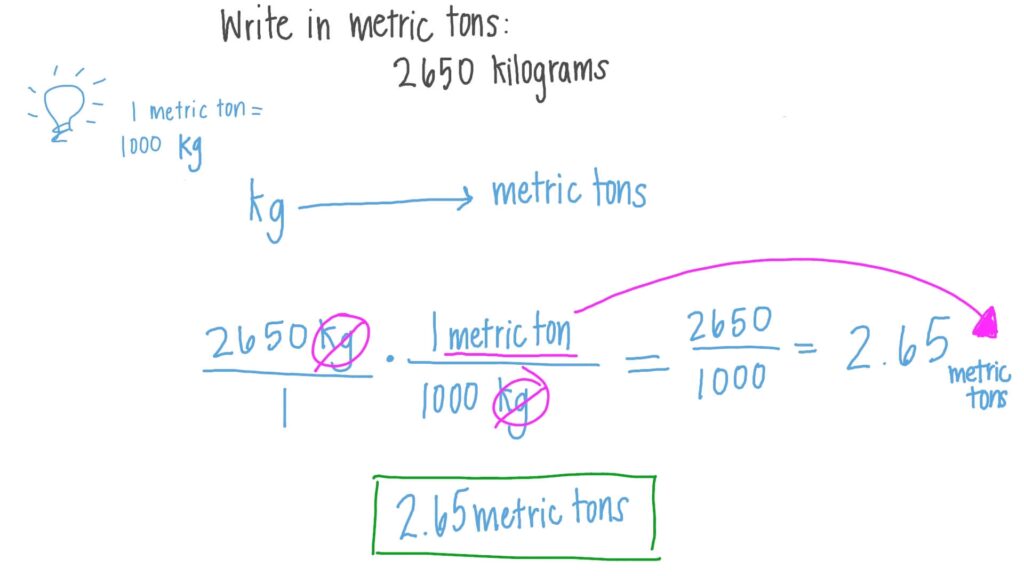 Write in metric tons:
2650 kilograms
1 metric ton =
1000 kg
kg → metric tons
2650 kg / 1 · 1 metric ton / 1000 kg = 2650 / 1000 = 2.65 metric tons
2.65 metric tons